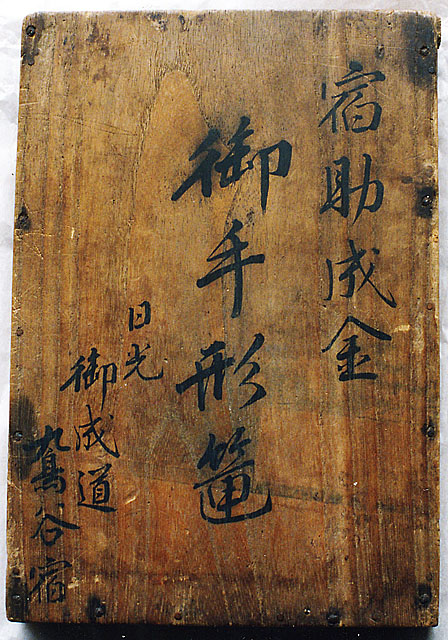 宿助成金
御手形箱
日光
御成道
鳩谷宿